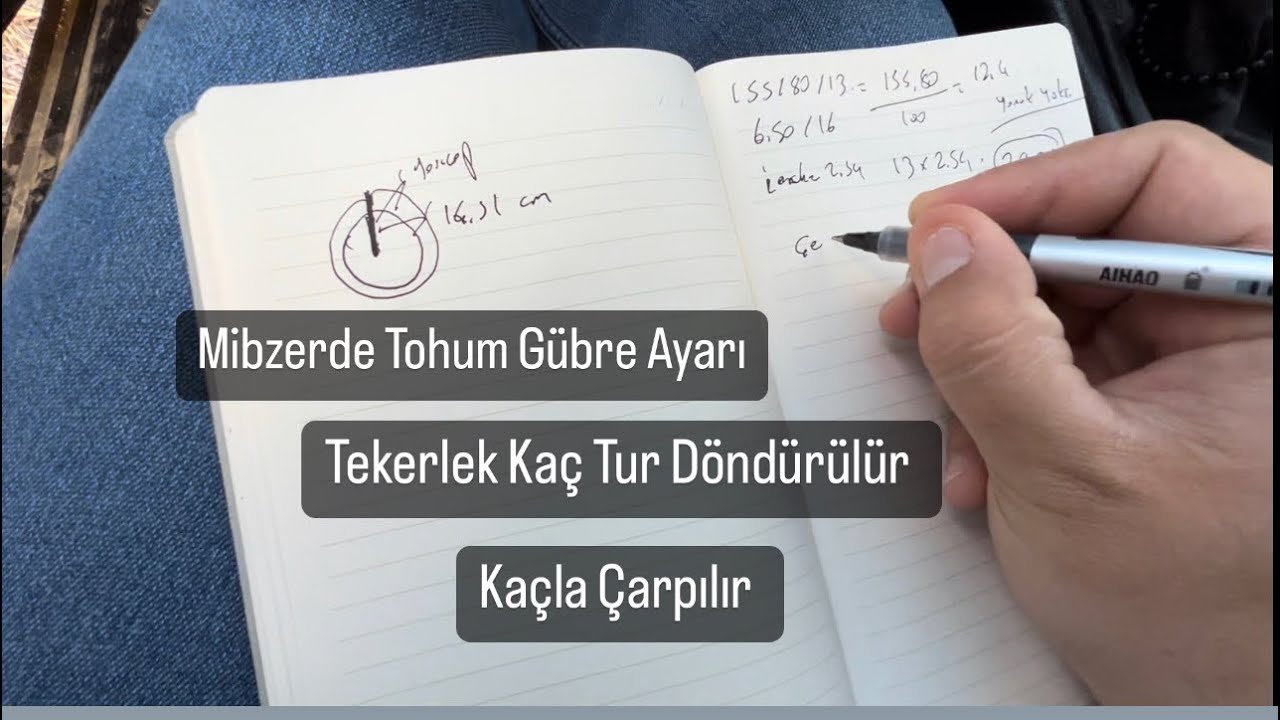 16.51 cm
155/80/13 = 155.80 = 12.4
100
6.50/16
2.54 13 x 2.54
Çe
AIHAO
Mibzerde Tohum Gübre Ayarı
Tekerlek Kaç Tur Döndürülür
Kaçla Çarpılır